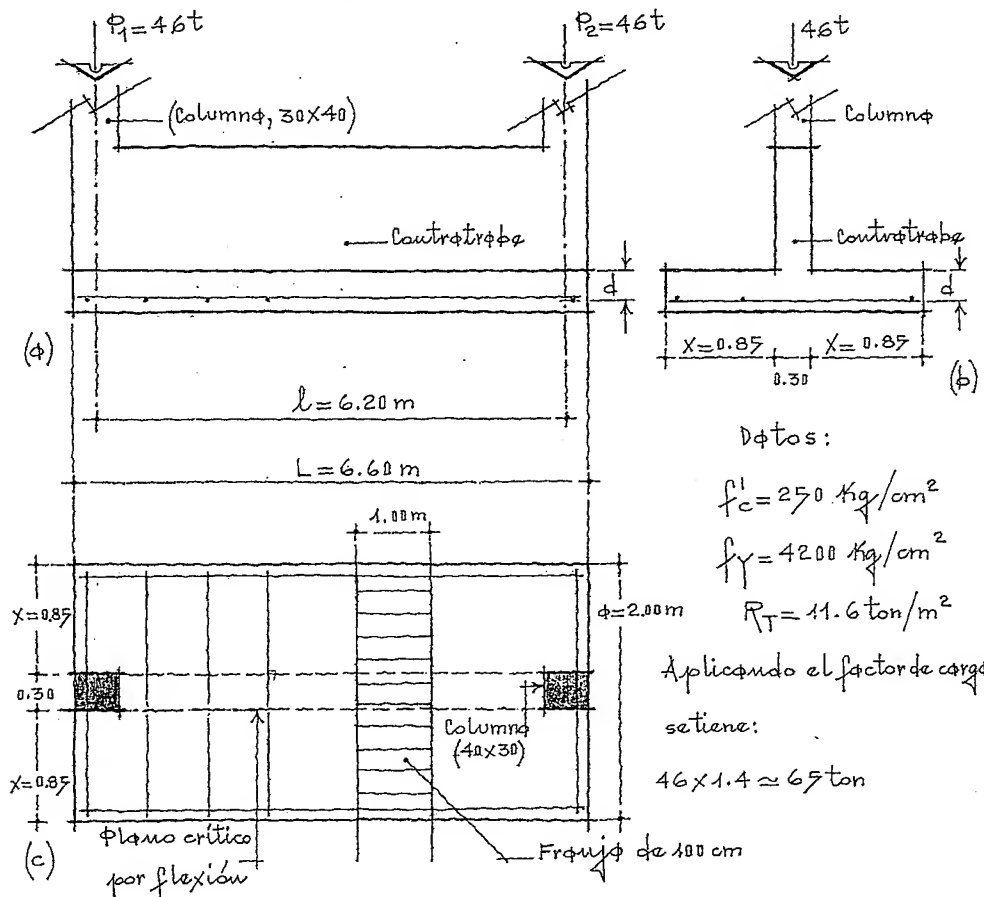 P₁=46t
P₂=46t
46t
(Columna, 30X40)
Columna
Contratrabe
Contratrabe
d
d
(a)
X=0.85
X=0.85
0.30
(b)
l=6.20 m
L=6.60 m
1.00 m
Datos:
f'c=250 Kg/cm²
fy=4200 Kg/cm²
RT=11.6 ton/m²
Aplicando el factor de carga
se tiene:
46x1.4≃65 ton
X=0.85
0.30
X=0.85
a=2.00 m
Columna
(40x30)
(c)
Plano crítico
por flexión
Franja de 100 cm